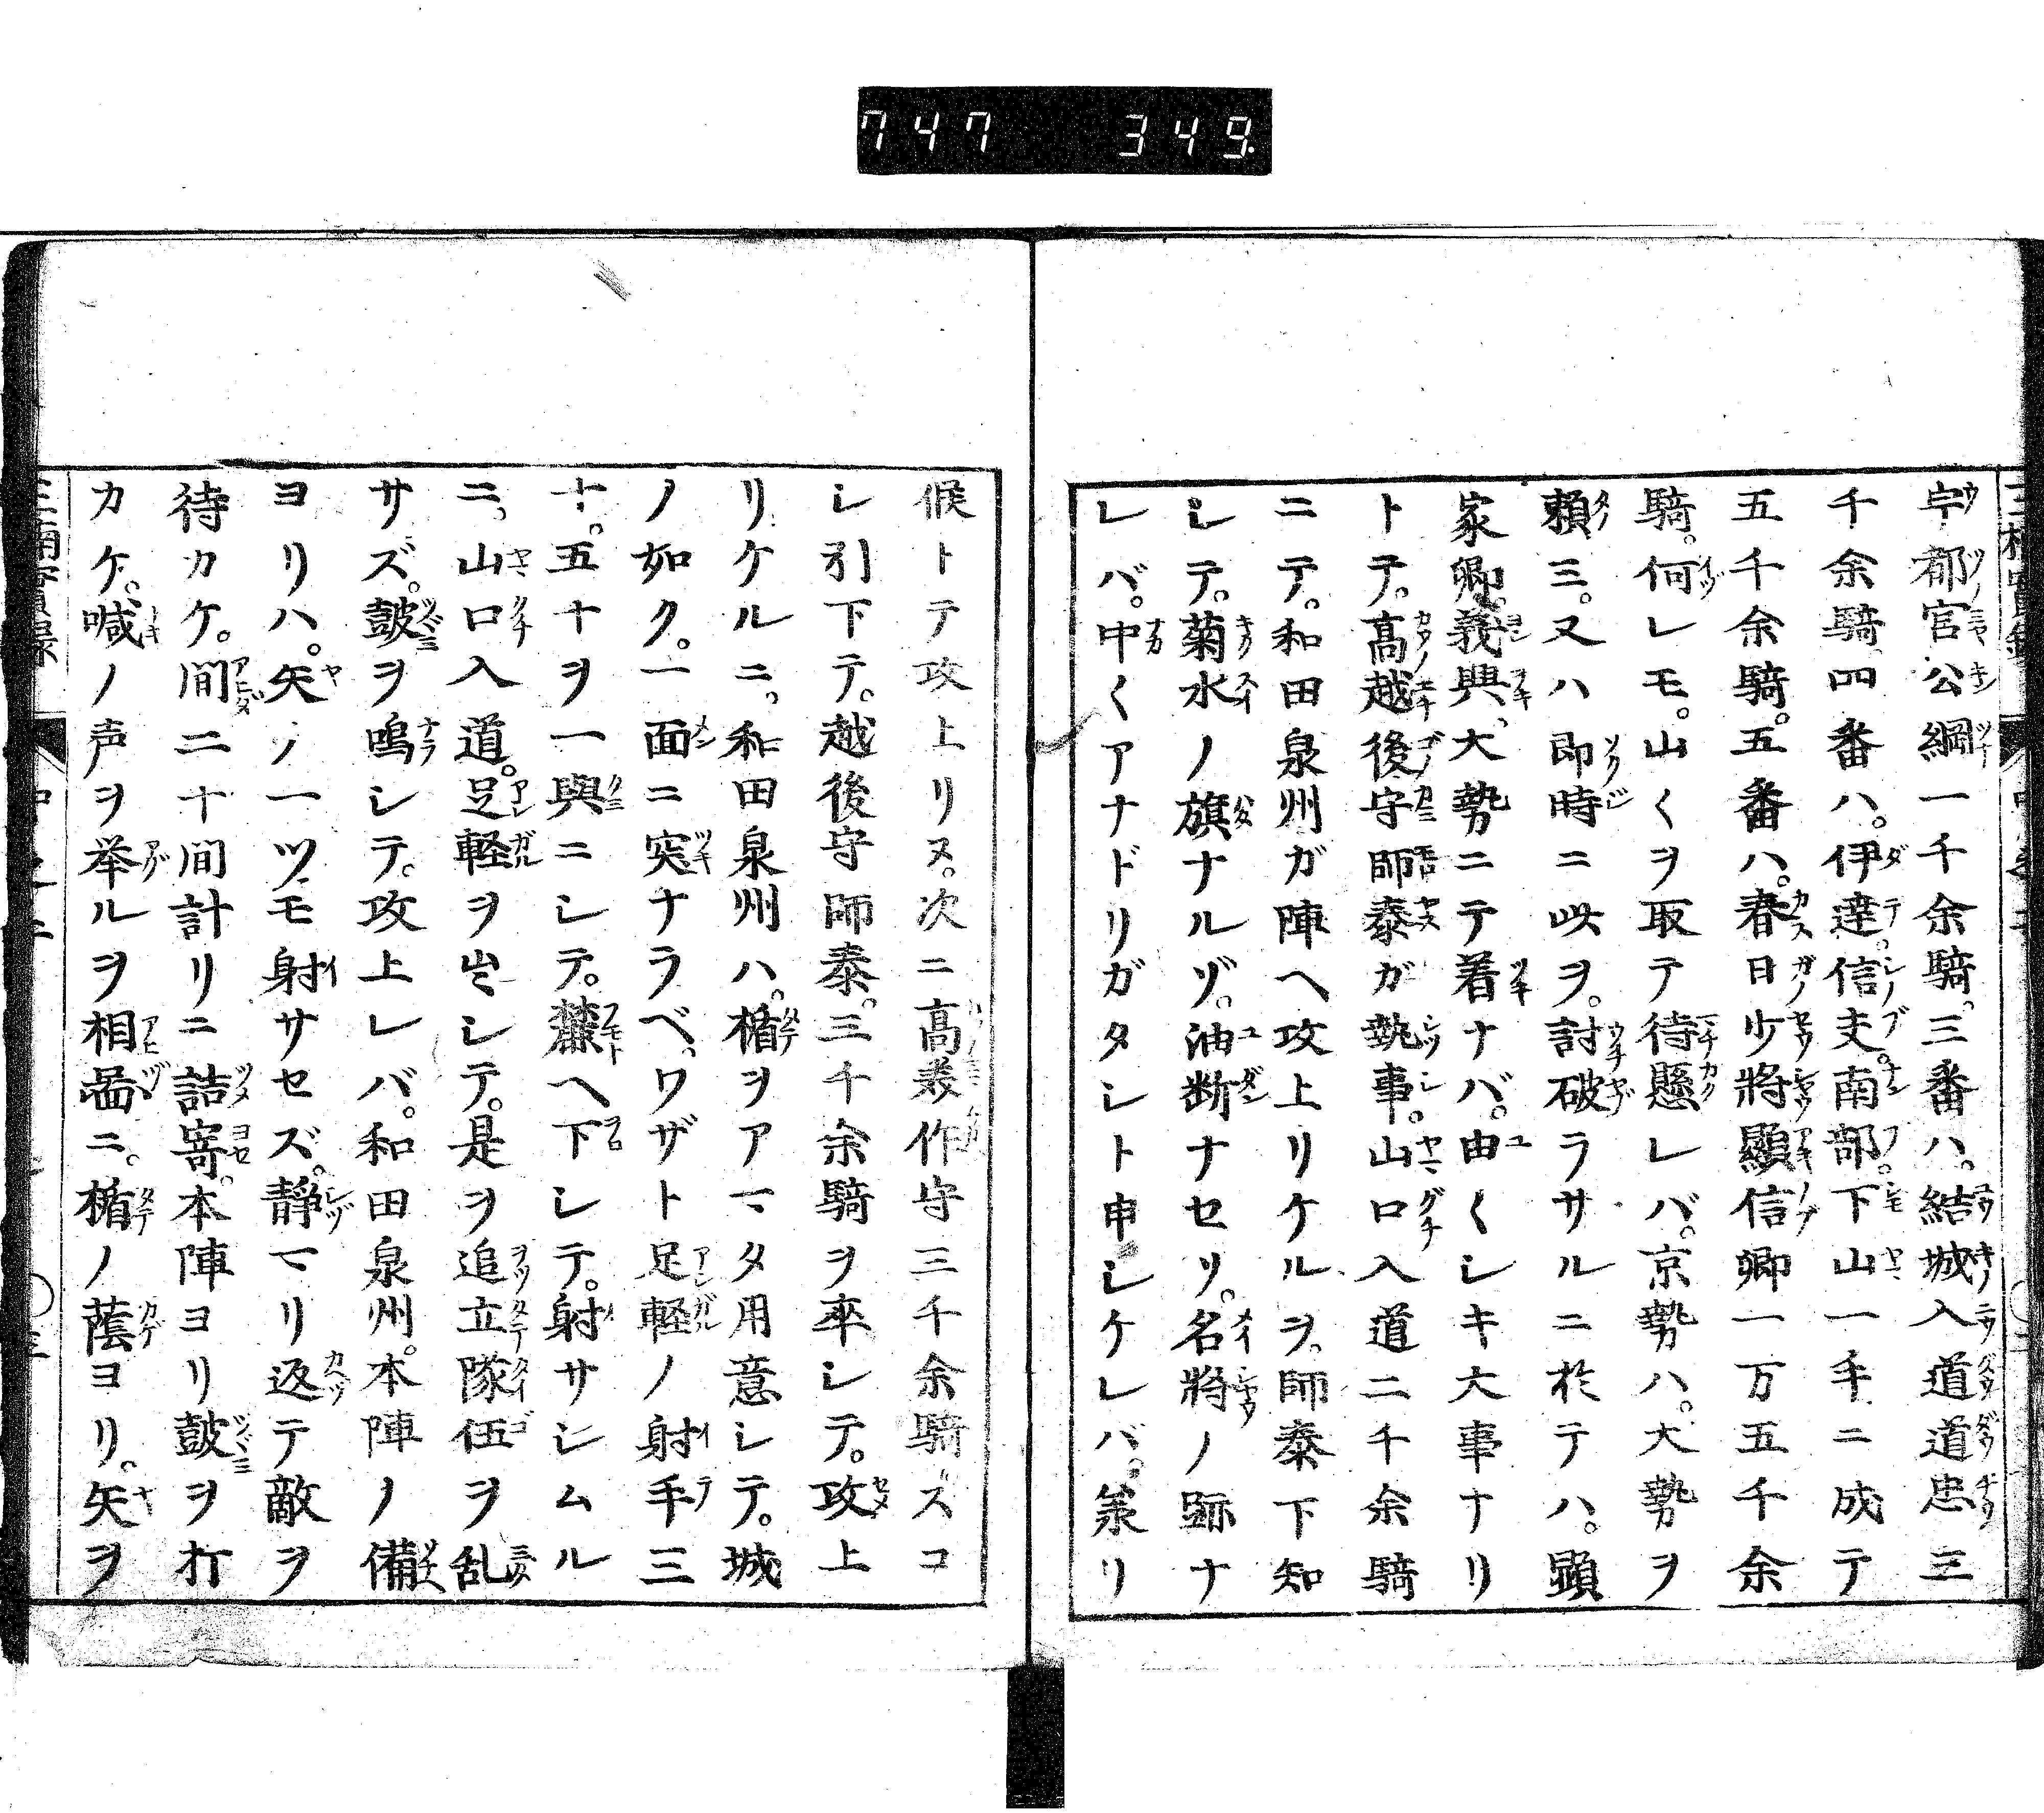 747 349.
宇都宮公綱一千余騎。三番ハ。結城入道道忠三
千余騎。四番ハ。伊達。信夫。南部。下山一手ニ成テ
五千余騎。五番ハ。春日少将顕信卿一万五千余
騎。何レモ。山〱ヲ取テ待懸レバ。京勢ハ。大勢ヲ
頼ミ。又ハ即時ニ此ヲ。討破ラサルニ於テハ。顕
家卿。義興、大勢ニテ着ナバ。由〱シキ大事ナリ
トテ。高越後守師泰ガ執事。山口入道二千余騎
ニテ。和田泉州ガ陣ヘ攻上リケルヲ。師泰下知
シテ。菊水ノ旗ナルゾ。油断ナセリ。名将ノ跡ナ
レバ。中〱アナドリガタシト申シケレバ。兼リ
候トテ攻上リヌ。次ニ高美作守三千余騎スコ
シ引下テ。越後守師泰。三千余騎ヲ卒シテ。攻上
リケルニ。和田泉州ハ。楯ヲアマタ用意シテ。城
ノ如ク。一面ニ突ナラベ。ワザト足軽ノ射手三
十。五十ヲ一與ニシテ。麓ヘ下シテ。射サシムル
ニ。山口入道。足軽ヲ出シテ。是ヲ追立隊伍ヲ乱
サズ。皷ヲ鳴シテ。攻上レバ。和田泉州。本陣ノ備
ヨリハ。矢ノ一ツモ射サセズ。静マリ返テ敵ヲ
待カケ。間二十間計リニ詰寄。本陣ヨリ皷ヲ打
カケ。喊ノ声ヲ挙ルヲ相啚ニ。楯ノ蔭ヨリ。矢ヲ